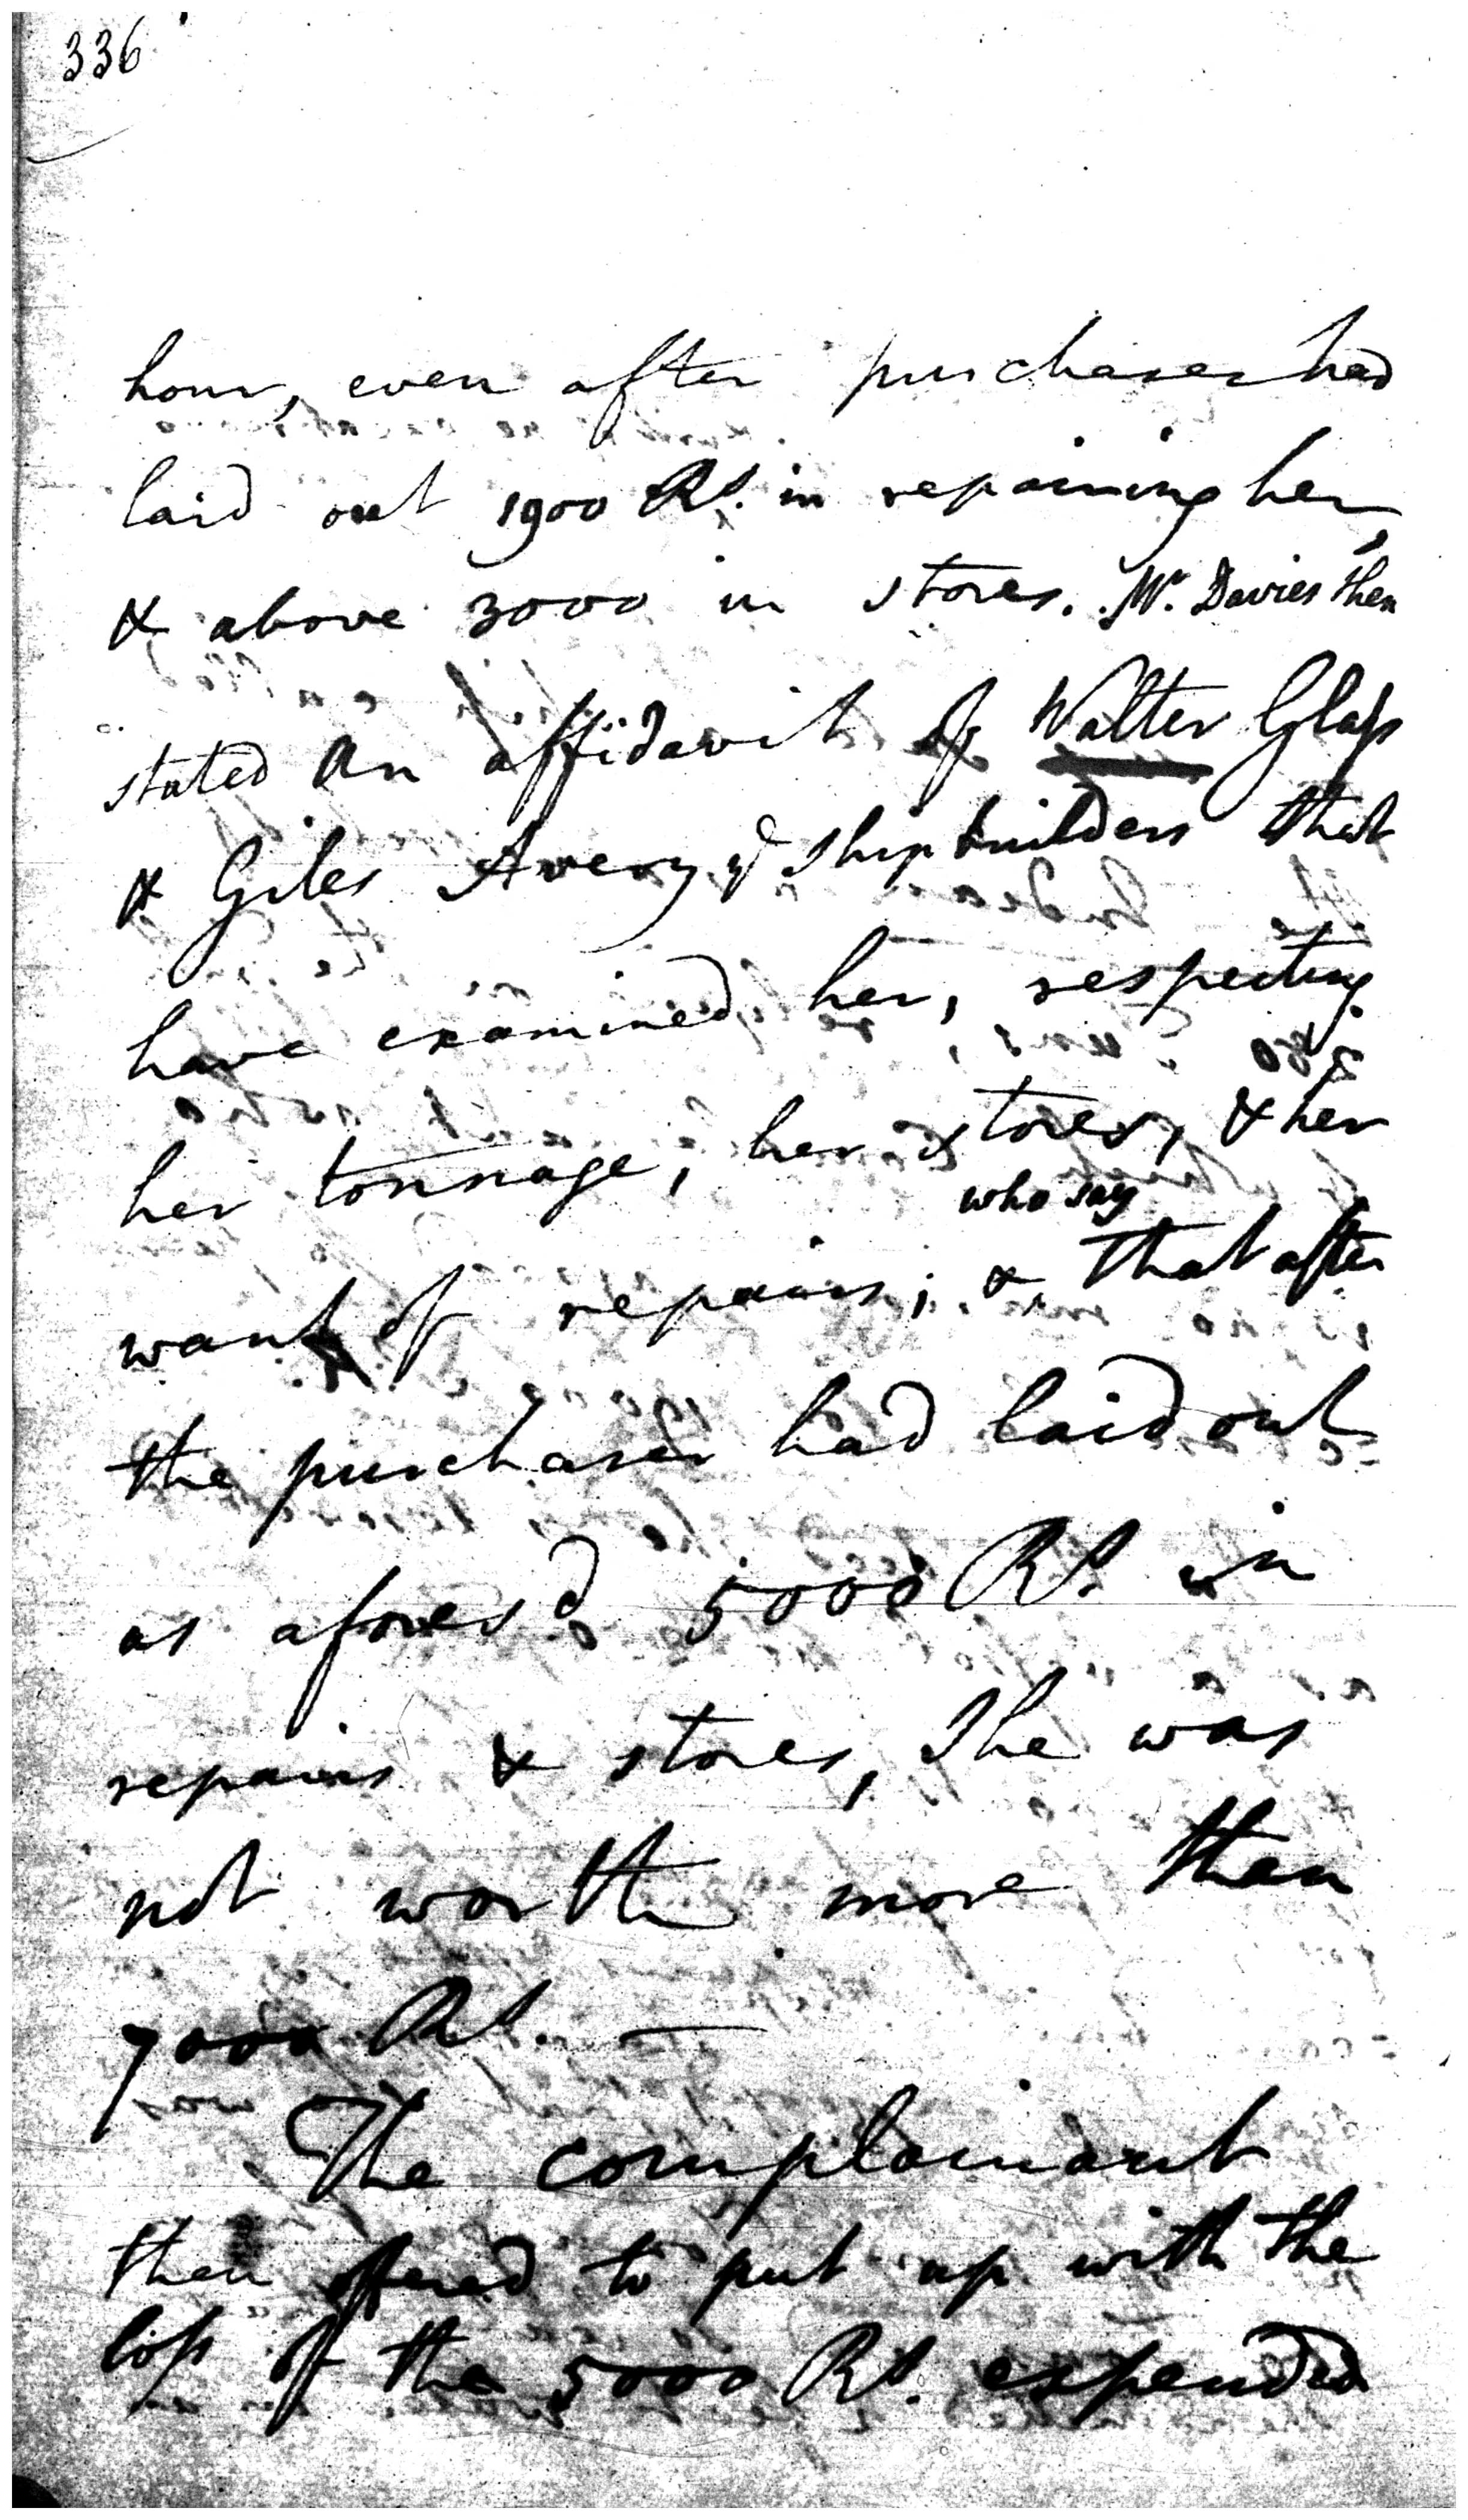 336
hour, even after purchaser had
laid out 1900 Rs. in repairing her,
& above 3000 in stores. Mr. Davies then
stated an affidavit of Walter Glass
& Giles Avery Ship builders that
have examined her, respecting
her tonnage, her stores, & her
who say
want of repairs; & that after
the purchaser had laid out
as aforesd. 5000 Rs. in
repairs & stores, she was
not worth more than
7000 Rs. —
The complainant
then offered to put up with the
loss of the 5000 Rs. expended